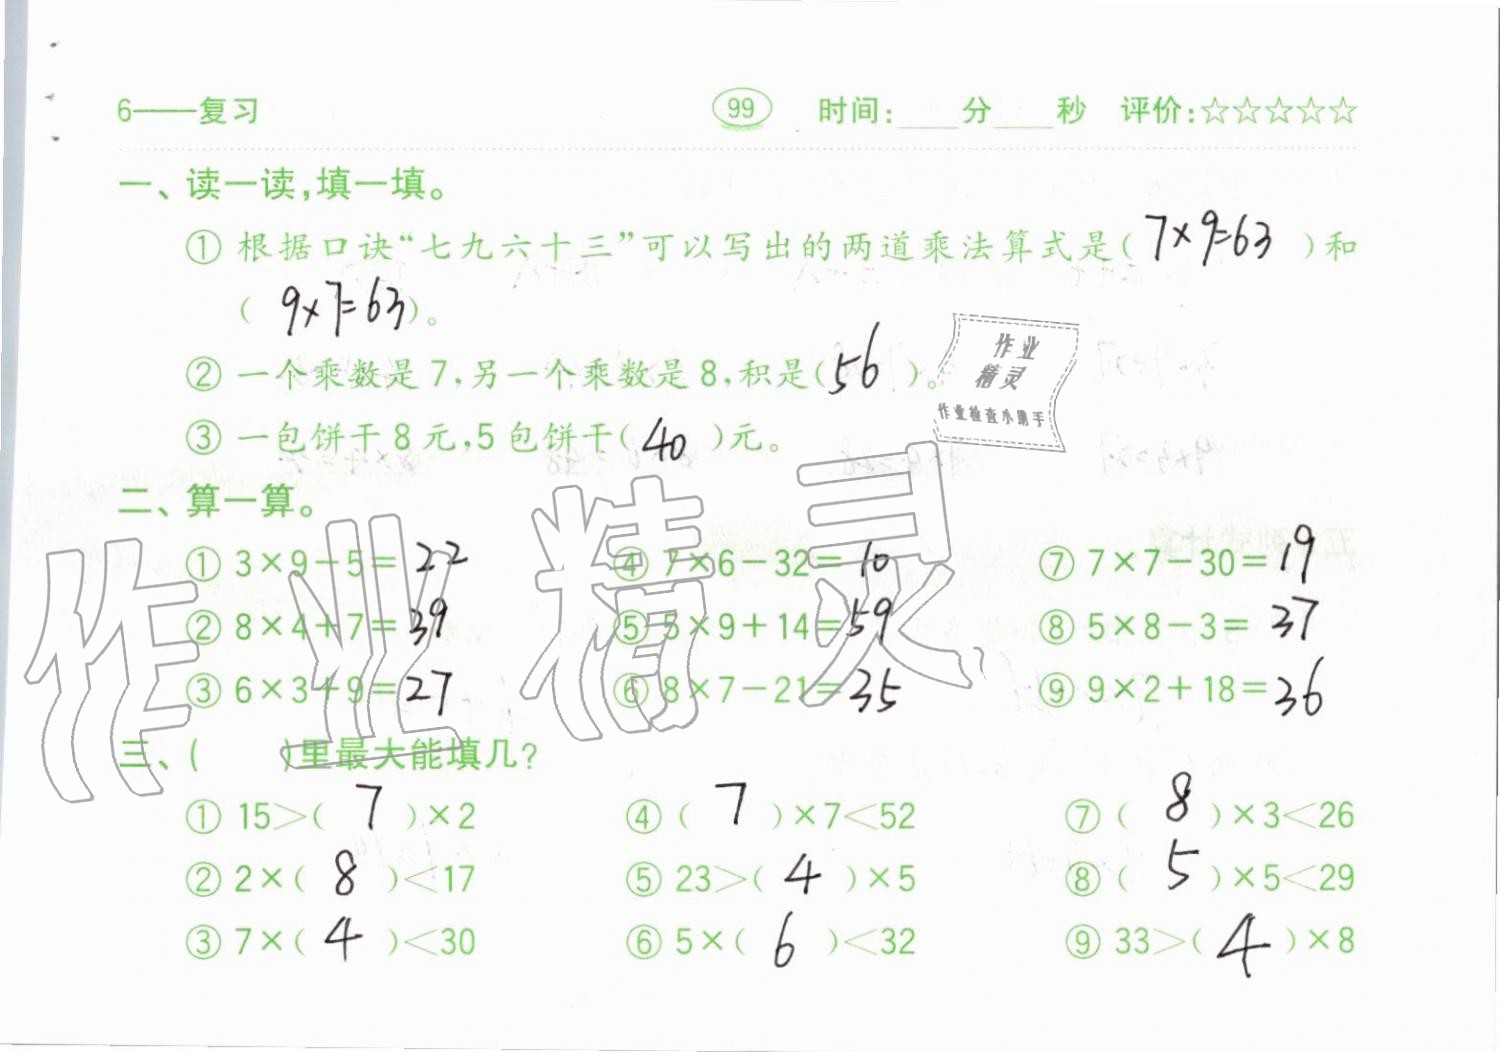 6——复习 99 时间:____分____秒 评价:☆☆☆☆☆
一、读一读,填一填。
① 根据口诀“七九六十三”可以写出的两道乘法算式是( 7×9=63 )和
( 9×7=63 )。
② 一个乘数是7,另一个乘数是8,积是( 56 )。
③ 一包饼干8元,5包饼干( 40 )元。
作业
精灵
作业检查小助手
二、算一算。
① 3×9-5= 22 ④ 7×6-32= 10 ⑦ 7×7-30= 19
② 8×4+7= 39 ⑤ 5×9+14= 59 ⑧ 5×8-3= 37
③ 6×3+9= 27 ⑥ 8×7-21= 35 ⑨ 9×2+18= 36
作业精灵
三、( )里最大能填几?
① 15>( 7 )×2 ④ ( 7 )×7<52 ⑦ ( 8 )×3<26
② 2×( 8 )<17 ⑤ 23>( 4 )×5 ⑧ ( 5 )×5<29
③ 7×( 4 )<30 ⑥ 5×( 6 )<32 ⑨ 33>( 4 )×8